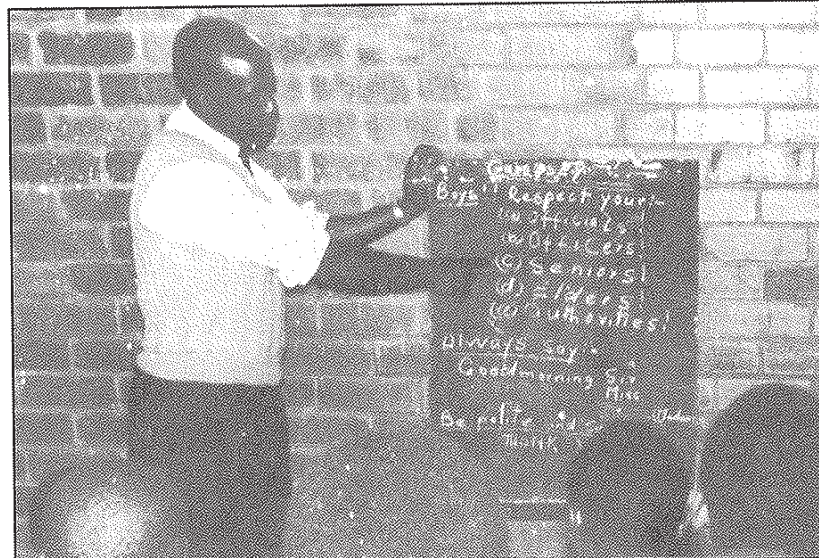 Boys" Respect your:-
Officials!
(b) Officers!
(c) Seniors!
(d) Elders!
(e) Authorities!
Always say:-
Goodmorning Sir
Miss
Be polite